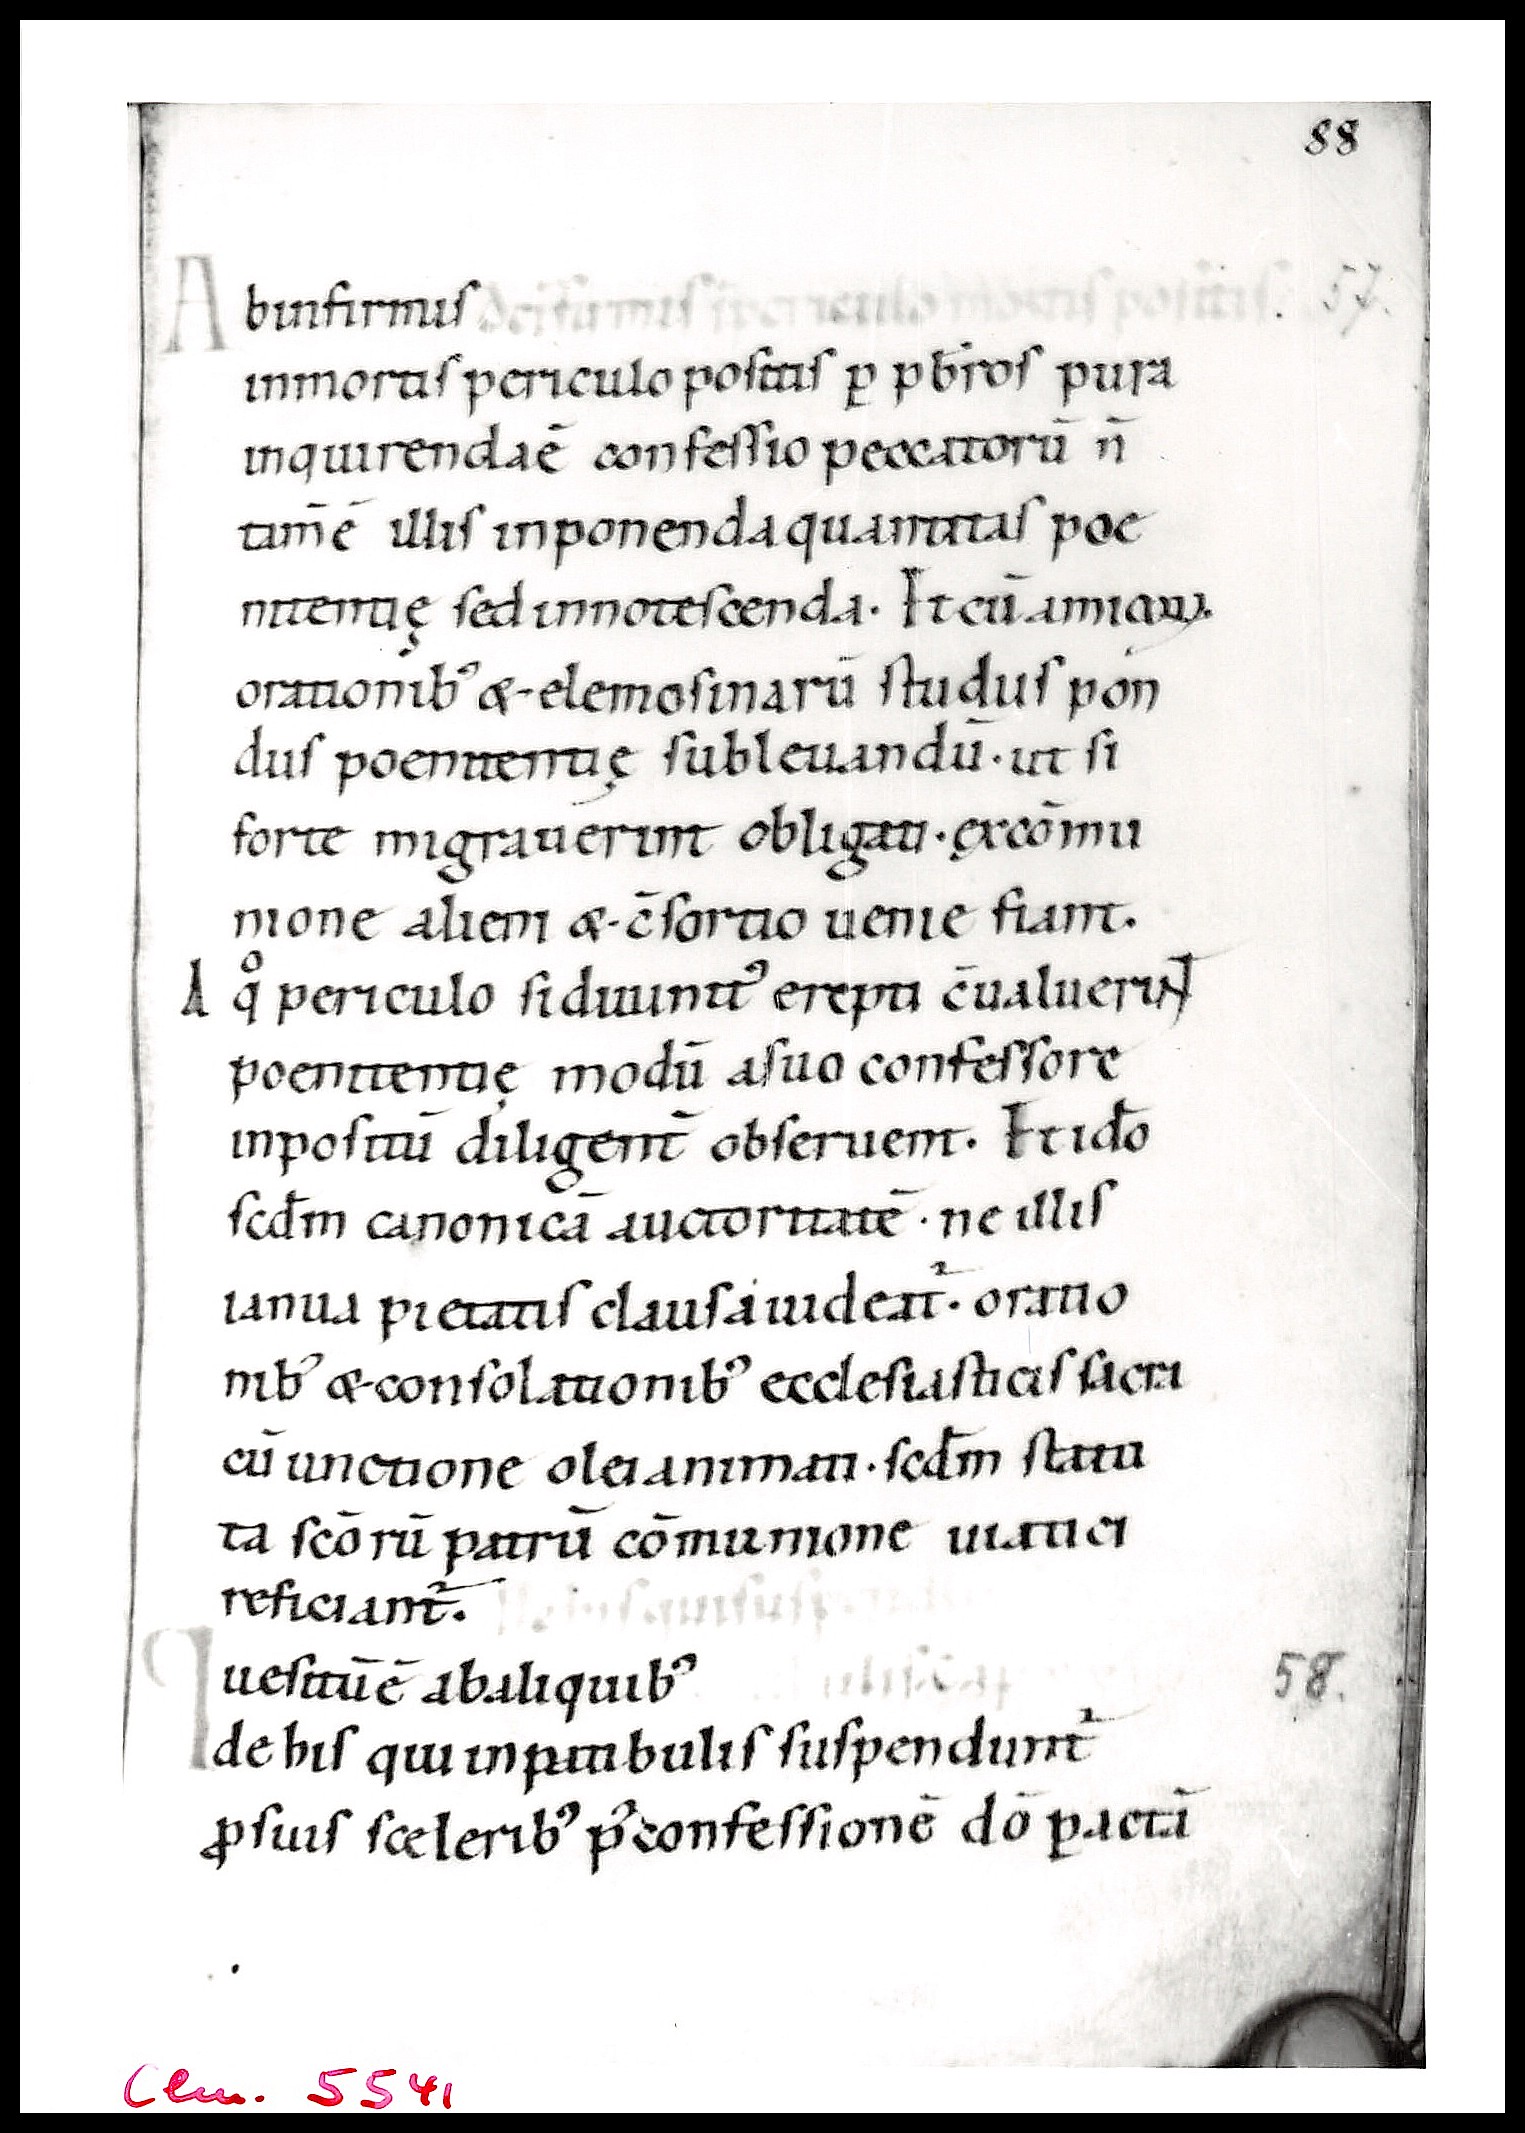 88
Abinfirmis 57.
inmortis periculo positis ꝑ pb̄ros pura
inquirendaē confessio peccatorū n̄
tam̄ē illis inponenda quantitas poe
nitentię sed innotescenda. Et cū amicoꝝ
orationib᾽ & elemosinarū studiis pon
dus poenitentię subleuandū. ut si
forte migrauerint obligati. ęxcōmu
nione alieni & c̄sortio uenie fiant.
A qͦ periculo si diuinit᾽ erepti c̄ualuerint
poenitentię modū asuo confessore
inpositū diligent̄ obseruent. Et id̄o
scd̄m canonicā auctoritatē. ne illis
ianua pietatis clausa uideat᷑. oratio
nib᾽ & consolationib᾽ ecclesiasticis sacra
cū unctione olei animati. scd̄m statu
ta scōrū patrū cōmunione uiatici
reficiant᷑.
Quesitūē abaliquib᾽ 58.
de his qui inpatibulis suspendunt᷑
ꝓsuis sceleribꝰ p᾽confessionē dō ꝑactā
Clm. 5541